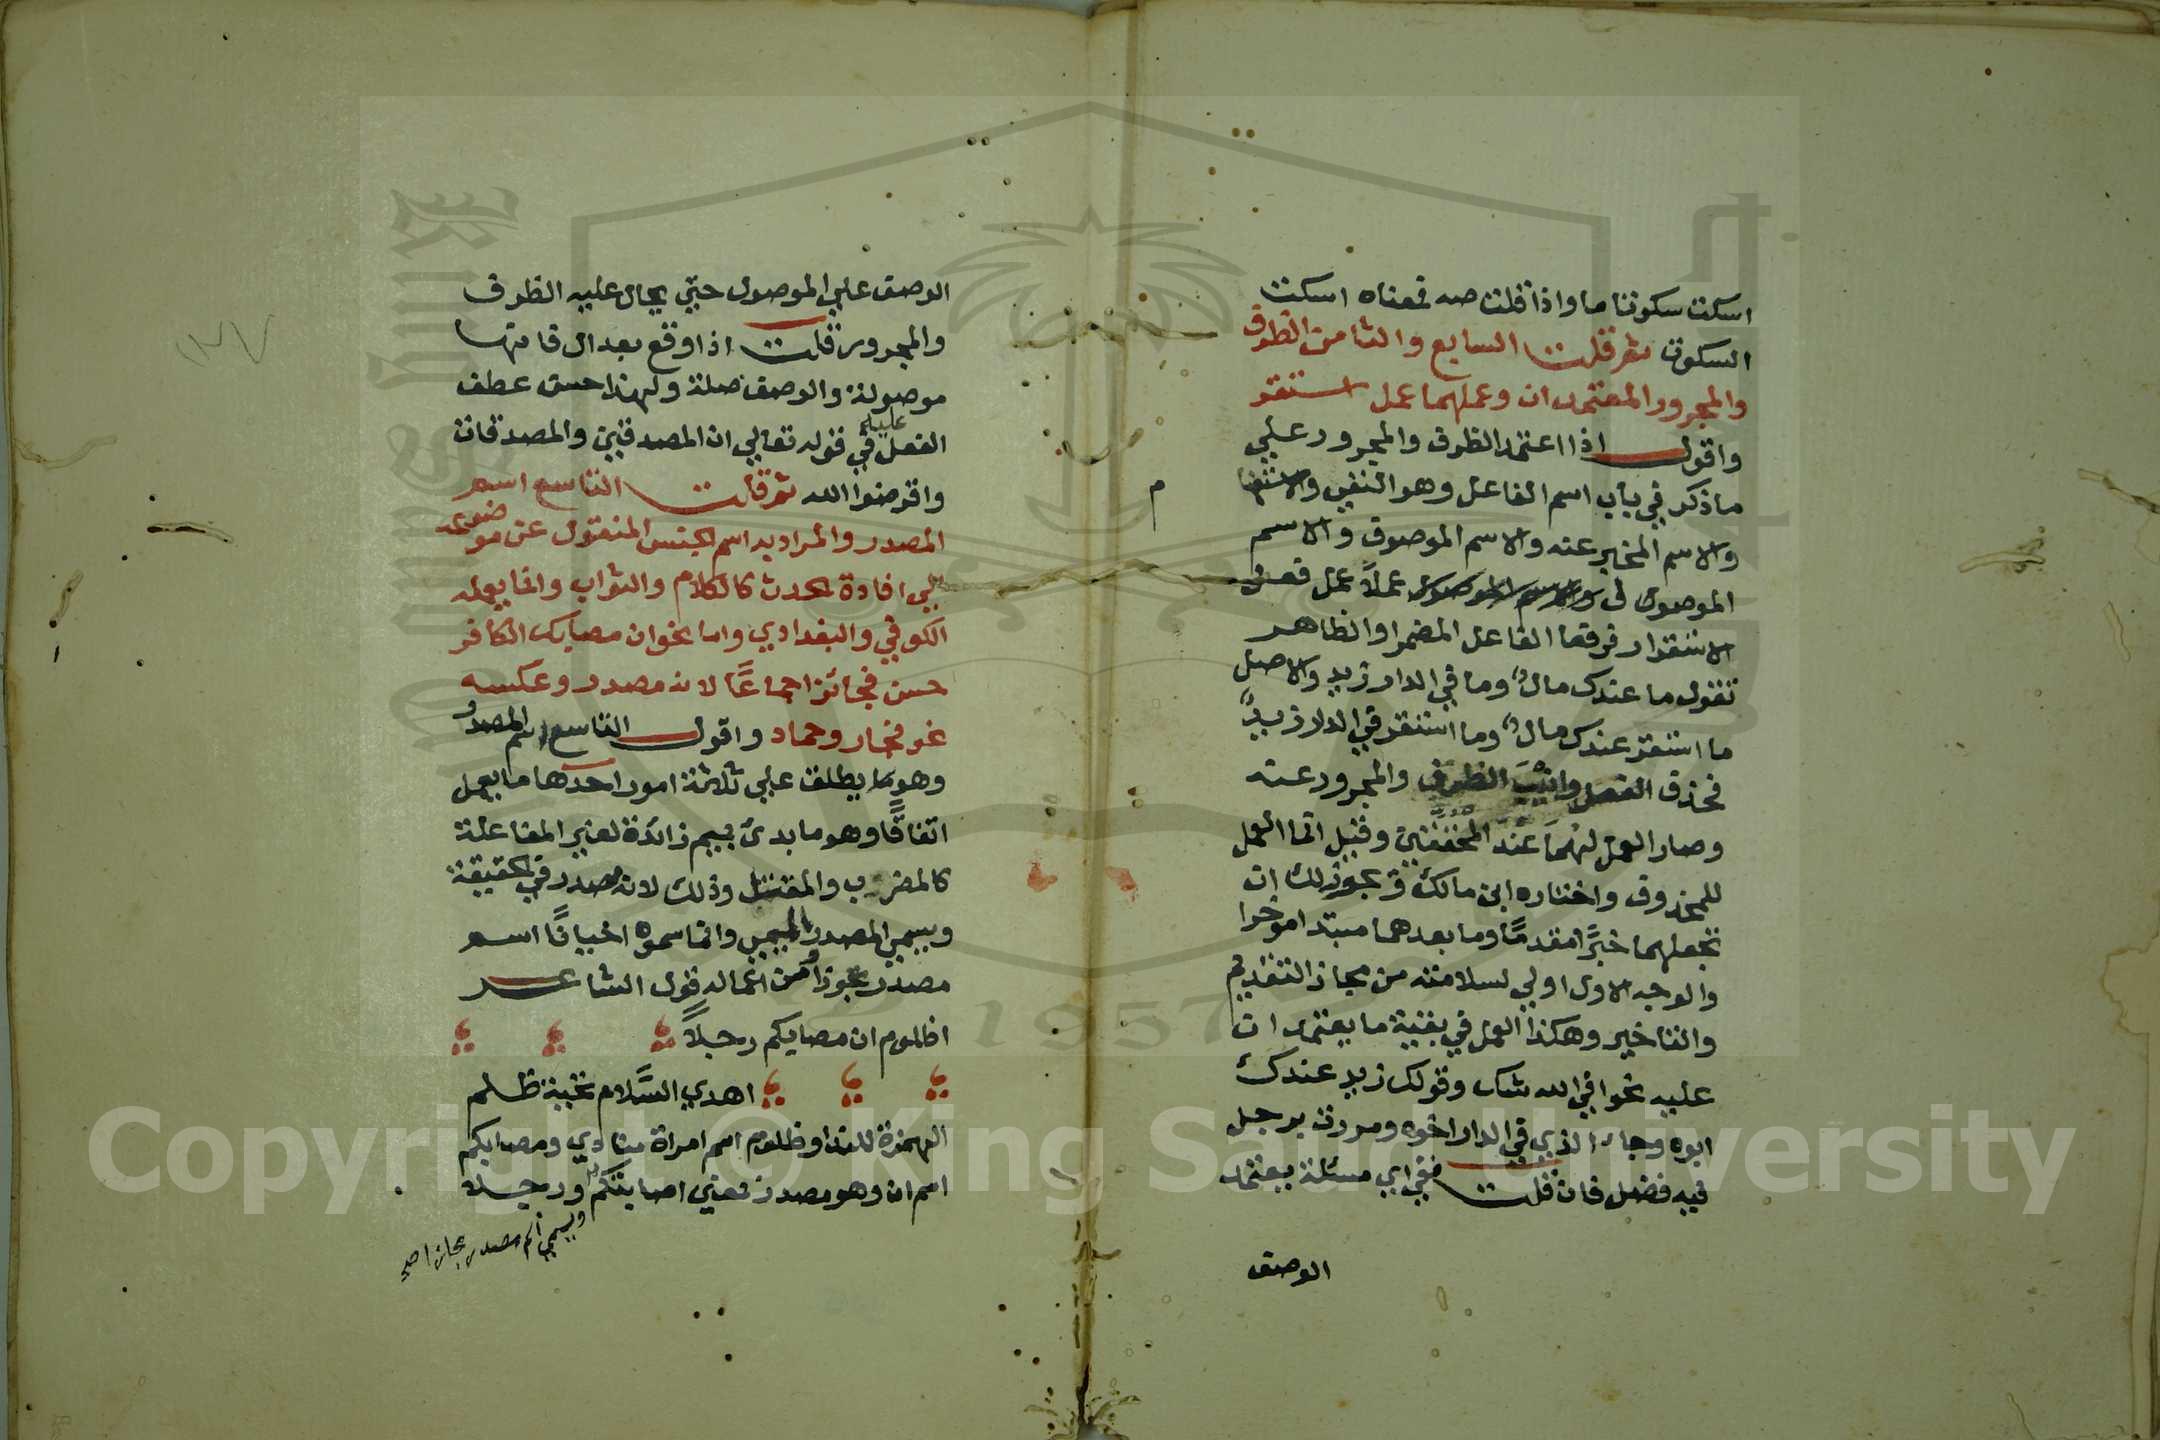 اسكت سكوتا ما واذا قلت صه فمعناه اسكت
السكوت ثم قلت السابع والثامن الظرف
والمجرور المعتمدان وعملهما عمل استقر
واقول اذا اعتمد الظرف والمجرور علي
ما ذكر في باب اسم الفاعل وهو النفي والاستفها
م
والاسم المخبر عنه والاسم الموصوف والاسم
الموصول والاسم الموصول عملا عمل فعل
الاستقرار فرفعا الفاعل المضمر او الظاهر
تقول ما عندك مالٌ وما في الدار زيد والاصل
ما استقر عندك مالٌ وما استقر في الدار زيدٌ
فحذف الفعل وانيب الظرف والمجرور عنه
وصار العمل لهما عند المحققين وقيل انما العمل
للمحذوف واختاره ابن مالك ويجوز لك ان
تجعلهما خبرًا مقدمًا وما بعدهما مبتدا موخرا
والوجه الاول اولي لسلامته من مجاز التقديم
والتاخير وهكذا العمل في بقية ما يعتمدان
عليه نحو افي الله شك وقولك زيد عندك
ابوه وجاء الذي في الدار اخوه ومررت برجل
فيه فضل فان قلت ففي اي مسئلة يعتمد
الوصف
الوصف علي الموصول حتي يحال عليه الظرف
والمجرور قلت اذا وقع بعد ال فانها
موصولة والوصف صلة ولهذا حسن عطف
الفعل عليه في قوله تعالي ان المصدقين والمصدقات
واقرضوا الله ثم قلت التاسع اسم
المصدر والمراد به اسم الجنس المنقول عن موضوعه
الي افادة الحدث كالكلام والثواب وانما يعمله
الكوفي والبغدادي واما نحو ان مصابك الكافر
حسن فجائز اجماعًا لانه مصدر وعكسه
نحو فجار وحماد واقول التاسع اسم المصدر
وهو يطلق علي ثلاثة امور احدها ما يعمل
اتفاقًا وهو ما بدئ بميم زائدة لغير المفاعلة
كالمضرب والمقتل وذلك لانه مصدر في الحقيقة
ويسمي المصدر الميمي وانما سموه احيانًا اسم
مصدر تجوزا ومن اعماله قول الشاعر
اظلوم ان مصابكم رجلاً
اهدي السَّلام تحية ظلم
الهمزة للندا وظلوم اسم امراة منادي ومصابكم
اسم ان وهو مصدر بمعني اصابتكم ورجلا
ويسمي اسم مصدر مجازا صح
١٣٧